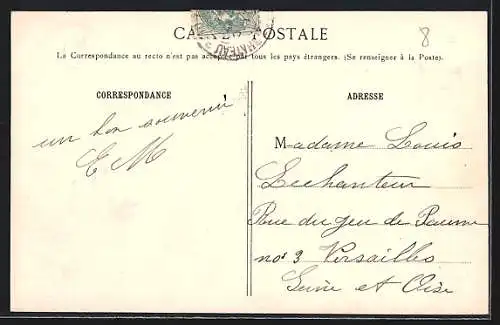 CARTE POSTALE
8
La Correspondance au recto n'est pas acceptée par tous les pays étrangers. (Se renseigner à la Poste).
CORRESPONDANCE
ADRESSE
un bon souvenir
E M
Madame Louis
Lechanteur
Rue du jeu de Paume
no 3 Versailles
Seine et Oise